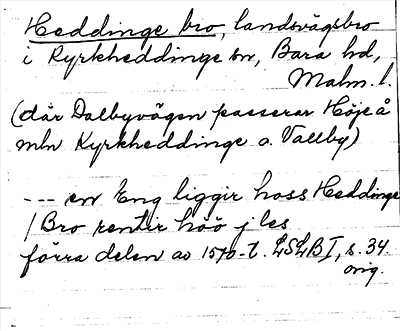 Heddinge bro, landsvägsbro
i Kyrkheddinge sn, Bara hd,
Malm. l.
(där Dalbyvägen passerar Höje å
mln Kyrkheddinge o. Vallby)
--- en Eng liggir hoss Heddinge
/ Bro rentir höö j les
förra delen av 1570-t. LSLB I, s. 34
orig.